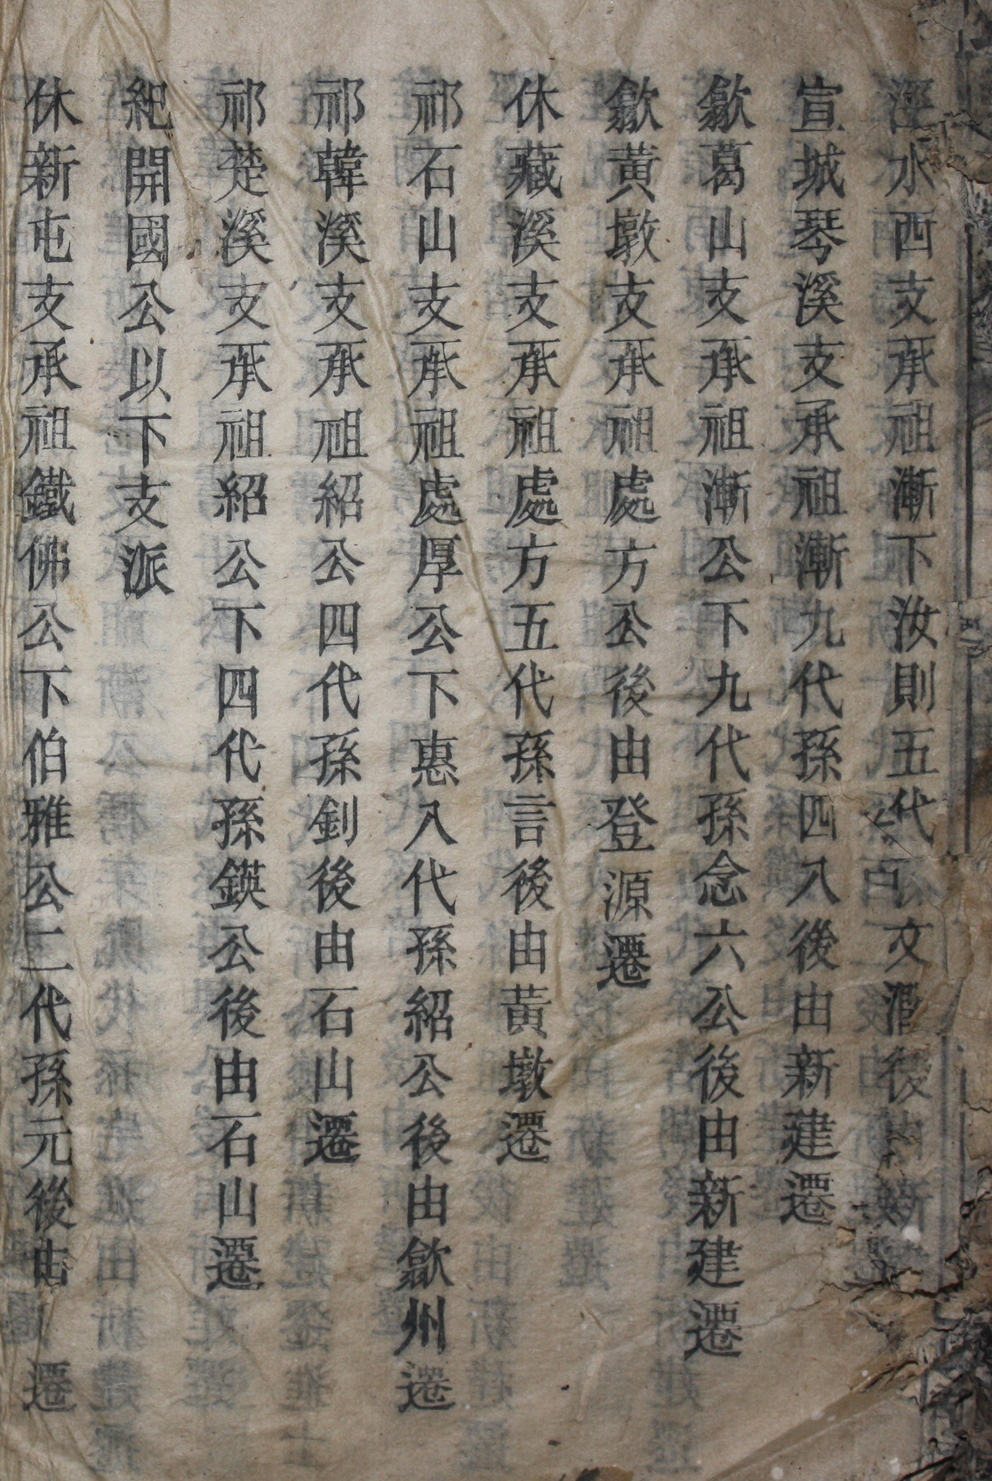 涇水西支承祖漸下汝則五代文後由新
宣城琴溪支承祖漸九代孫四八後由新建遷
歙葛山支承祖漸公下九代孫念六公後由新建遷
歙黃墩支承祖處方公後由登源遷
休藏溪支承祖處方五代孫言後由黃墩遷
祁石山支承祖處厚公下惠八代孫紹公後由歙州遷
祁韓溪支承祖紹公四代孫釗後由石山遷
祁楚溪支承祖紹公下四代孫鍈公後由石山遷
紀開國公以下支派
休新屯支承祖鐵佛公下伯雅公二代孫元後由遷